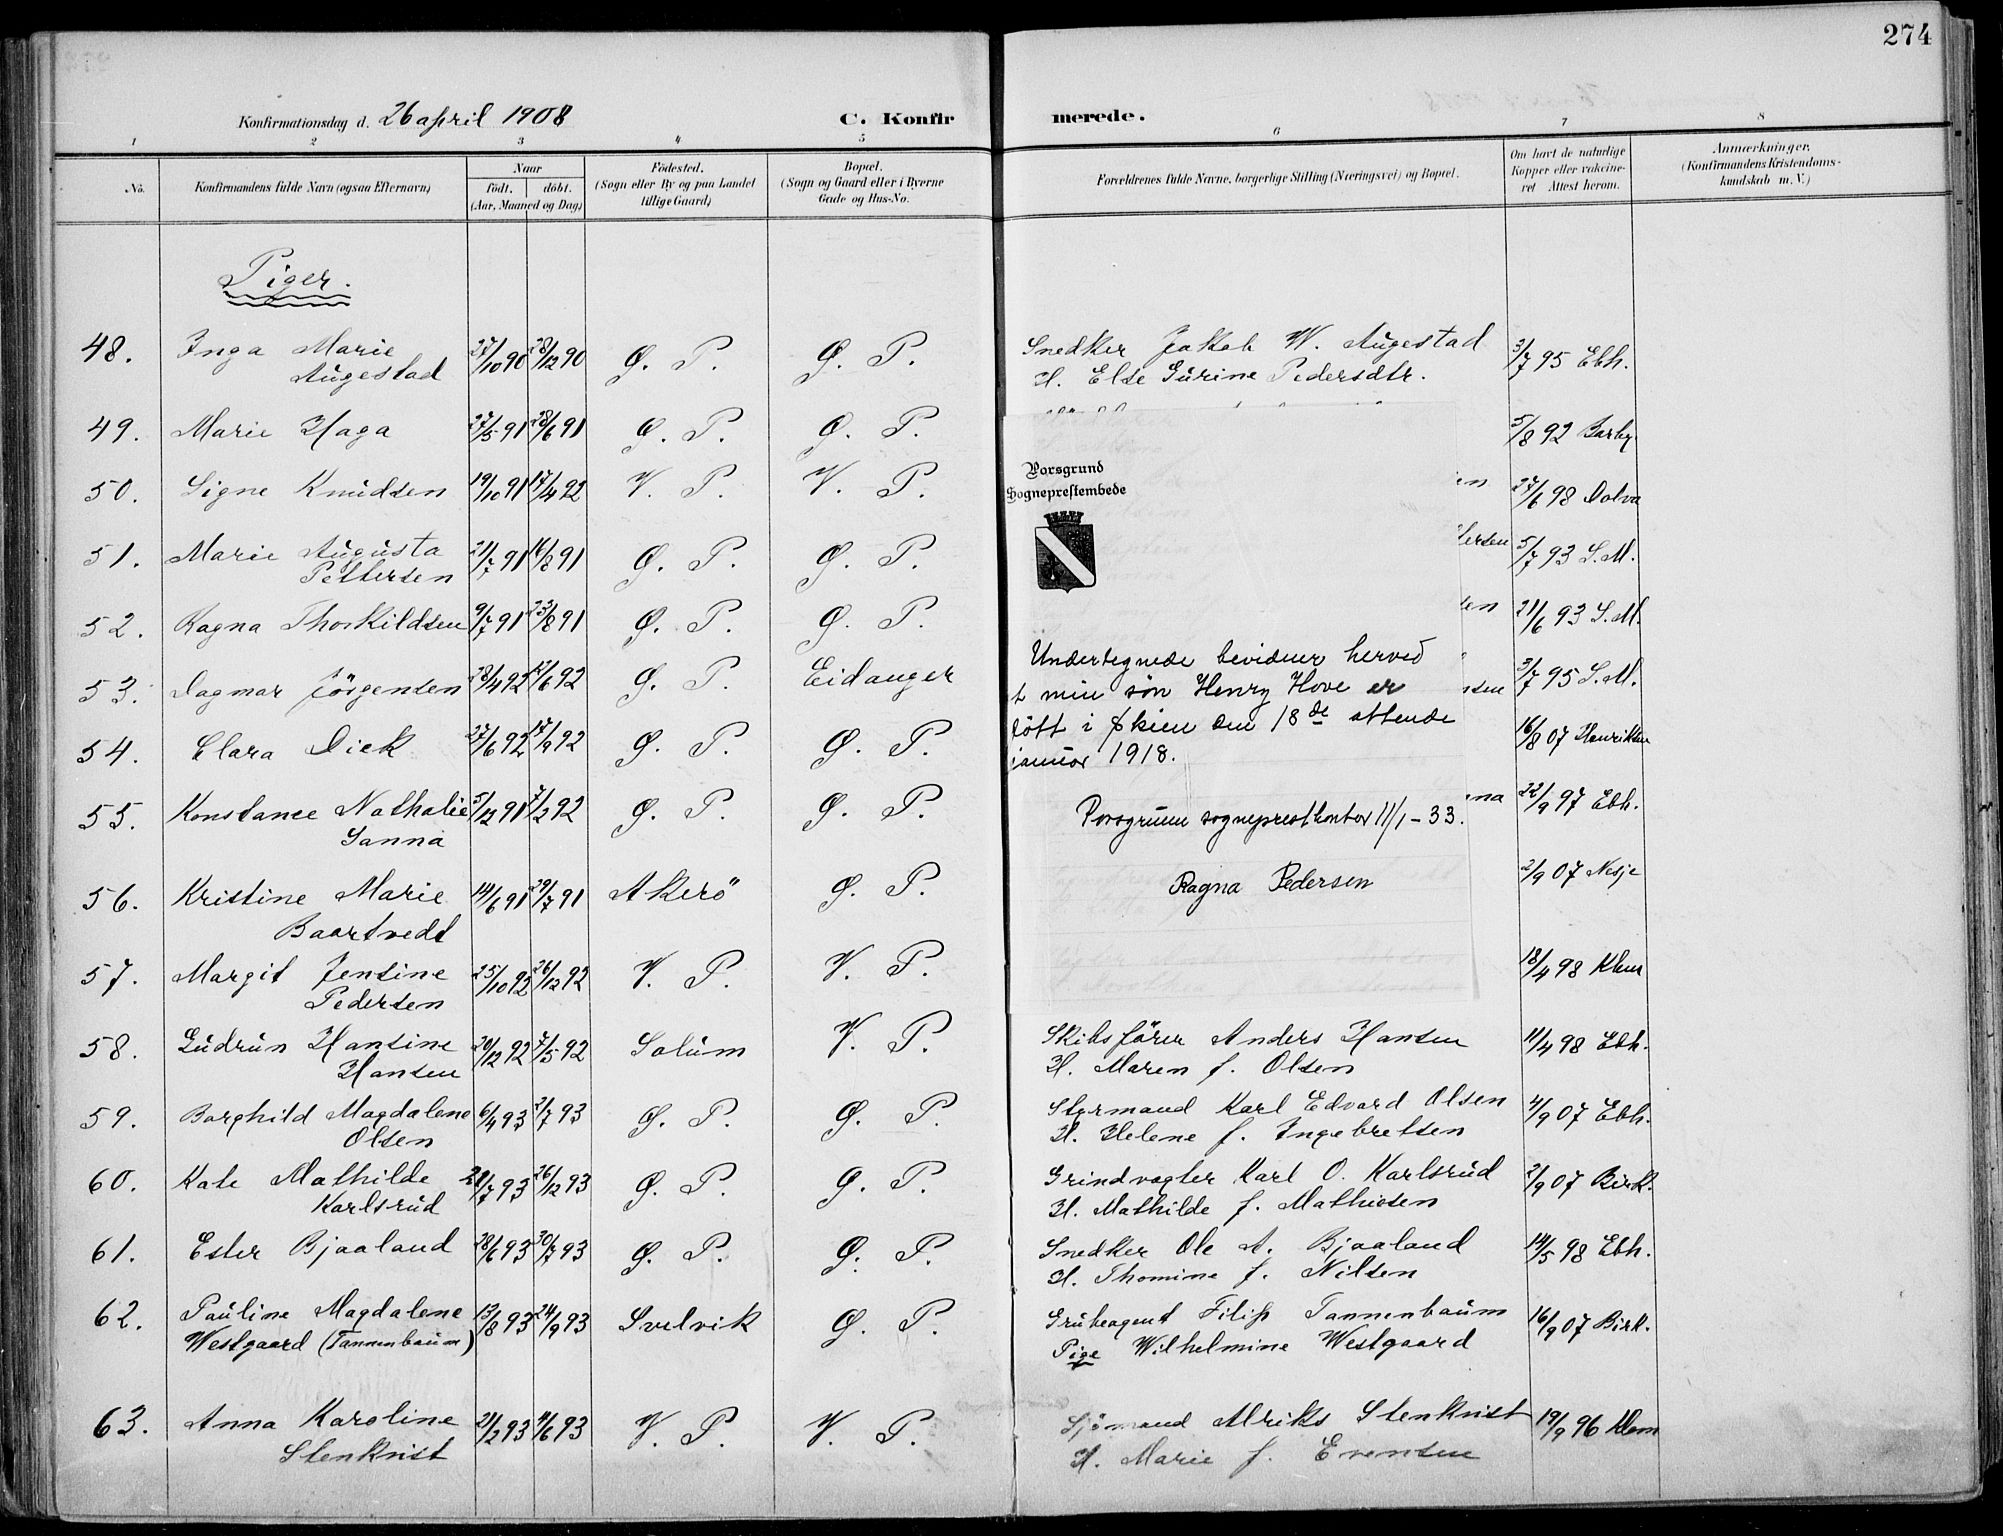 274
Konfirmationsdag d. 26 april 1908
C. Konfirmerede.
1 2 3 4 5 6 7 8
No.
Konfirmandens fulde Navn (ogsaa Efternavn)
Naar
födt. döbt.
(Aar, Maaned og Dag)
Födested.
(Sogn eller By og paa Landet
tillige Gaard)
Bopæl.
(Sogn og Gaard eller i Byerne
Gade og Hus-No.
Forældrenes fulde Navne, borgerlige Stilling (Næringsvei) og Bopæl.
Om havt de naturlige
Kopper eller vakcine-
ret Attest herom.
Anmærkninger.
(Konfirmandens Kristendoms-
kundskab m. V.)
Piger.
48. Inga Marie 27/10 90 28/12 90 Ø. P. Ø. P. Snedker Jakob W. Augestad 3/7 95 Ebh.
Augestad H. Else Gurine Pedersdtr.
49. Marie Haga 27/5 91 28/6 91 Ø. P. Ø. P. 5/8 92 Barby
50. Signe Knudsen 19/10 91 17/4 92 V. P. V. P. 27/6 98 Dolva
51. Marie Augusta 21/7 91 16/8 91 Ø. P. Ø. P. 5/7 93 S. M.
Pettersen
52. Ragna Thorkildsen 9/7 91 23/8 91 Ø. P. Ø. P. 21/6 93 S. M.
53. Dagmar Jörgensen 28/4 92 12/6 92 Ø. P. Eidanger 3/7 95 S. M.
54. Clara Dick 27/6 92 17/9 92 Ø. P. Ø. P. 16/8 07 Henriksen
55. Konstance Nathalie 5/12 91 7/2 92 Ø. P. Ø. P. 22/9 97 Ebh.
Sanna
56. Kristine Marie 14/6 91 29/7 91 Akerö Ø. P. 2/9 07 Nesje
Baartvedt
57. Margit Jensine 25/10 92 26/12 92 V. P. V. P. 18/4 98
Pedersen
58. Gudrun Hansine 20/12 92 7/5 92 Solum V. P. Skibsförer Anders Hansen 11/4 98 Ebh.
Hansen H. Maren f. Olsen
59. Borghild Magdalene 6/4 93 2/7 93 Ø. P. Ø. P. Styrmand Karl Edvard Olsen 4/9 07 Ebh.
Olsen H. Helene f. Ingebretsen
60. Kate Mathilde 29/7 93 26/12 93 Ø. P. Ø. P. Grindvogter Karl O. Karlsrud 2/9 07 Birk.
Karlsrud H. Mathilde f. Mathisen
61. Ester Bjaaland 28/6 93 30/7 93 Ø. P. Ø. P. Snedker Ole A. Bjaaland 14/5 98 Ebh.
H. Thomine f. Nilsen
62. Pauline Magdalene 13/8 93 24/9 93 Svelvik Ø. P. Grubeagent Filip Tannenbaum 16/9 07 Birk.
Westgaard (Tannenbaum) Pige Wilhelmine Westgaard
63. Anna Karoline 21/2 93 4/6 93 V. P. V. P. Sjömand Alriks Stenkvist 19/9 96 Klem
Stenkvist H. Marie f. Evensen
Porsgrund
Sogneprestembede
Undertegnede bevidner herved
t min sön Henry Hove er
fött i Skien den 18de attende
januar 1918.
Porsgrunn sogneprestkontor 11/1 - 33.
Ragna Pedersen